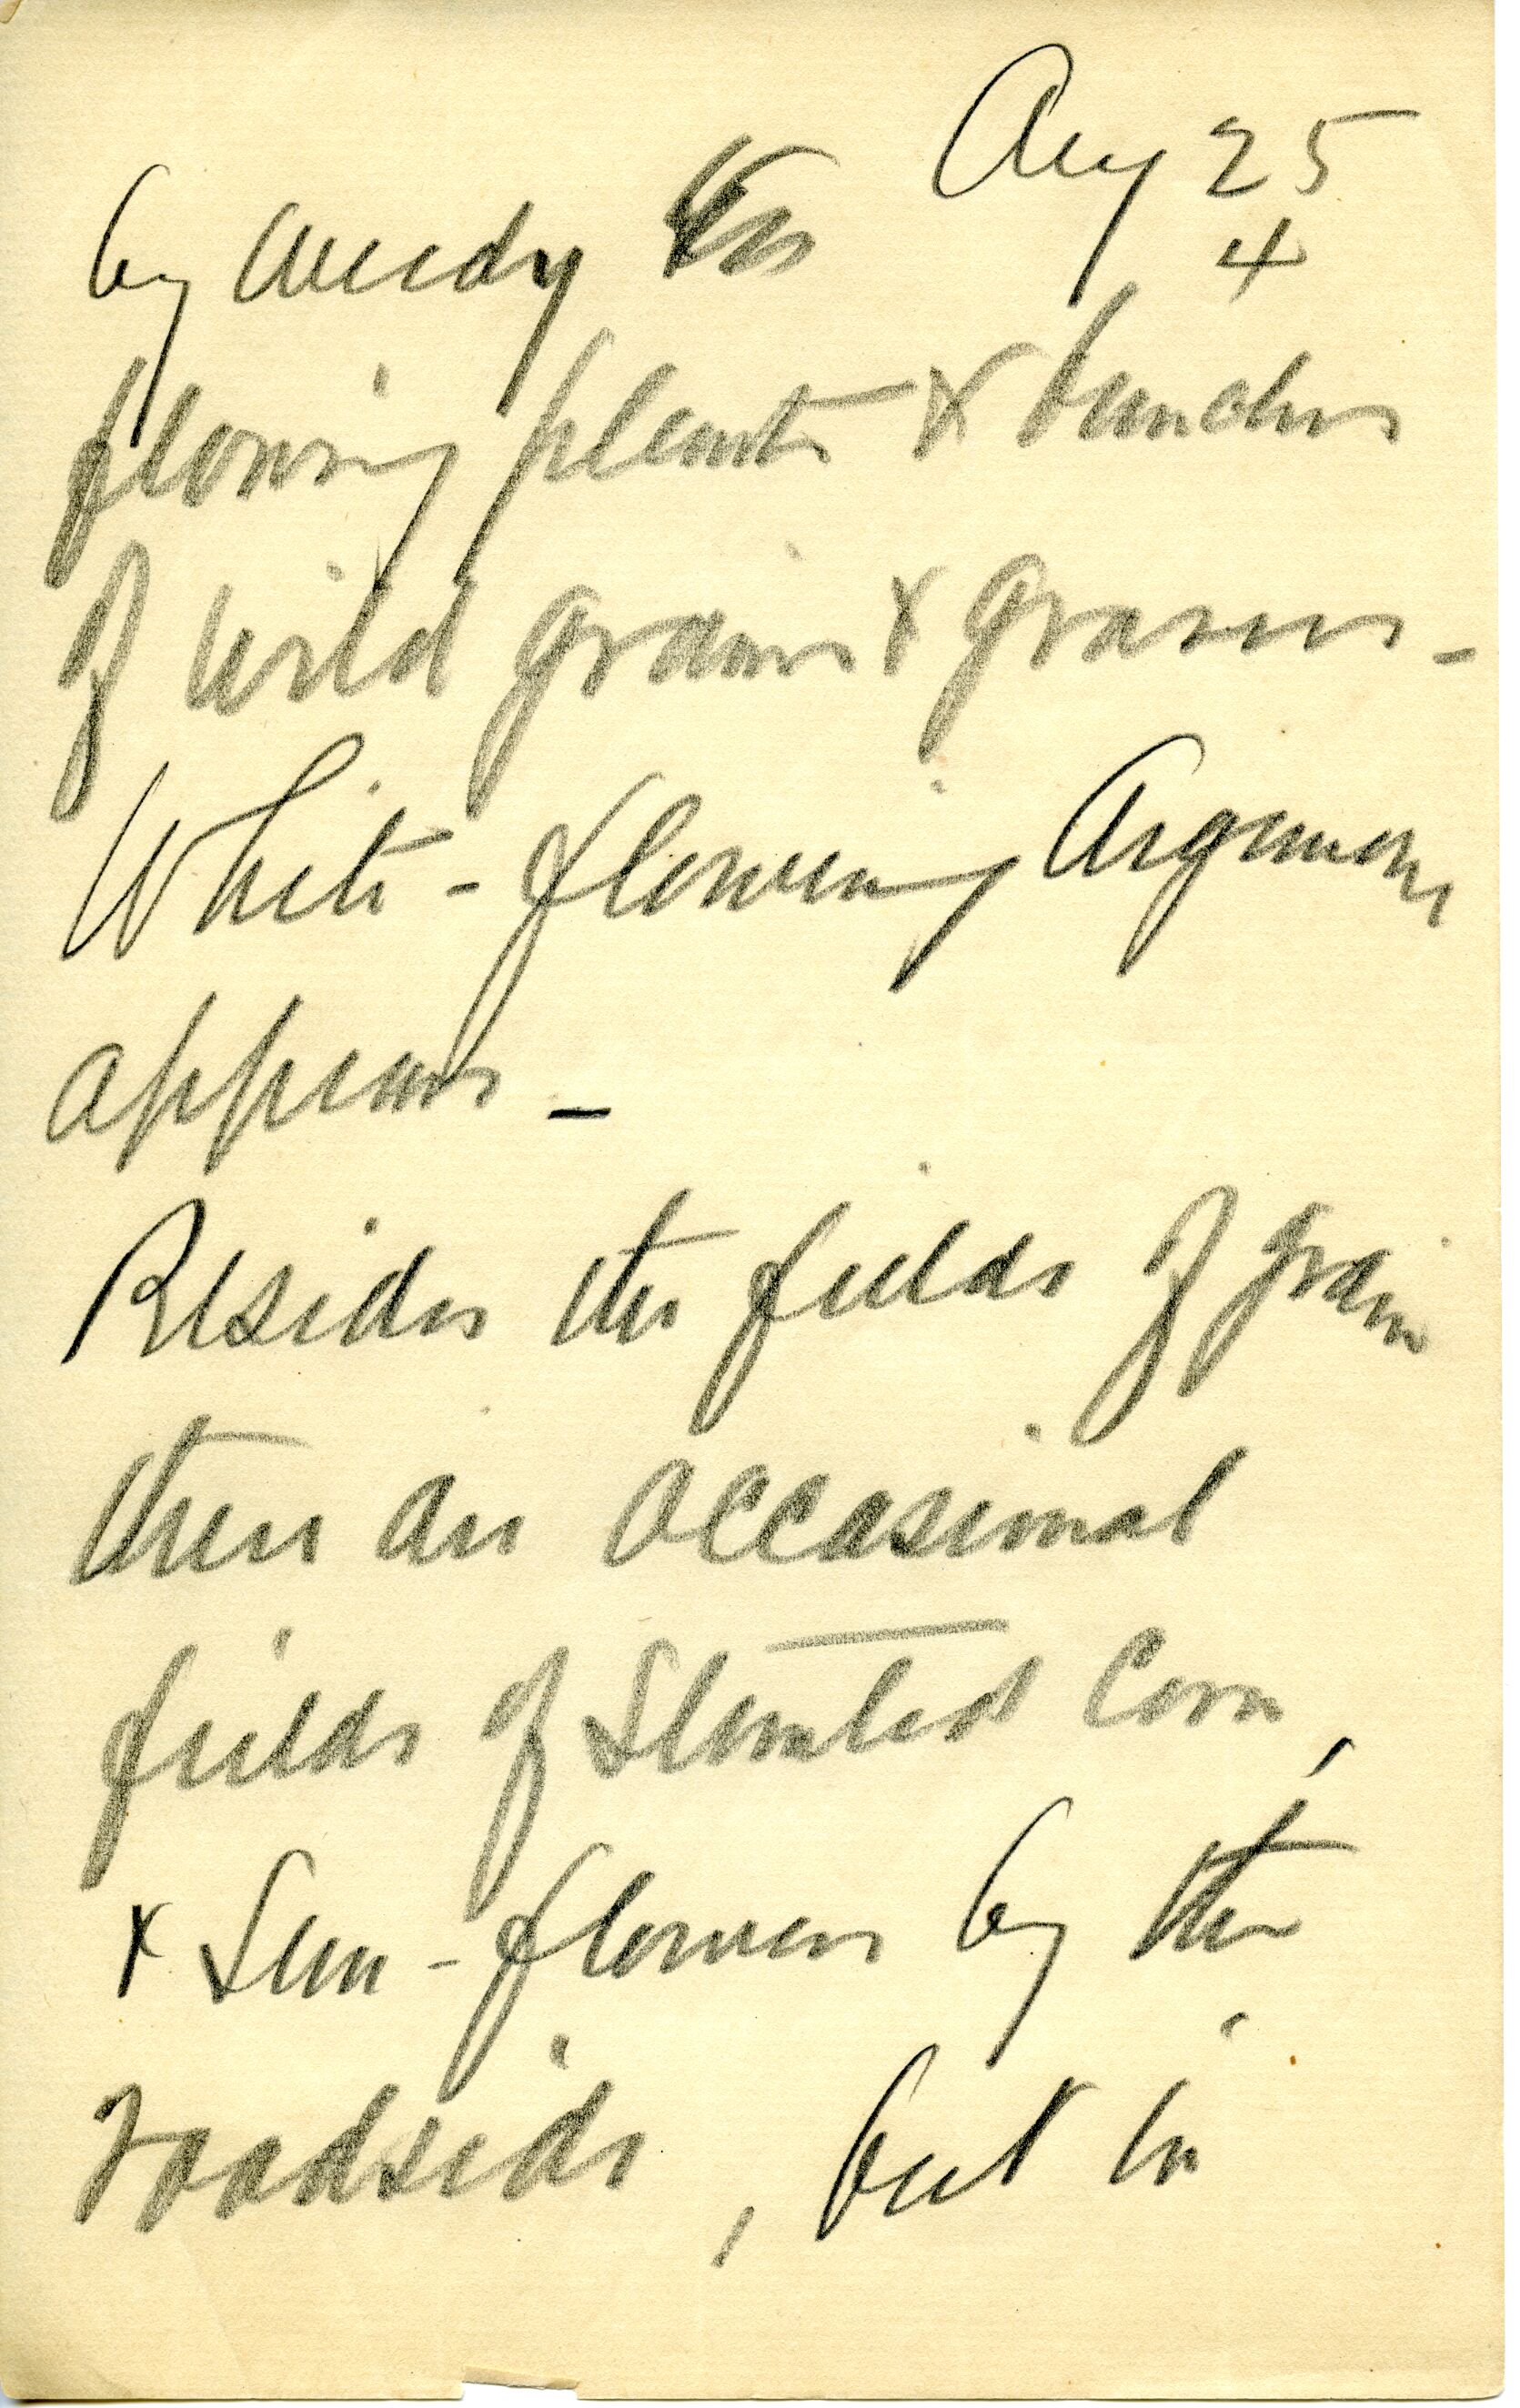 Aug 25
4
by weedy
flowing plants & bunches
of wild grains & grasses -
White - flowering Argemone
appears -
Besides the fields of grain
there an occasional
fields of stunted corn,
& Sun - flowers by the
roadside, but in